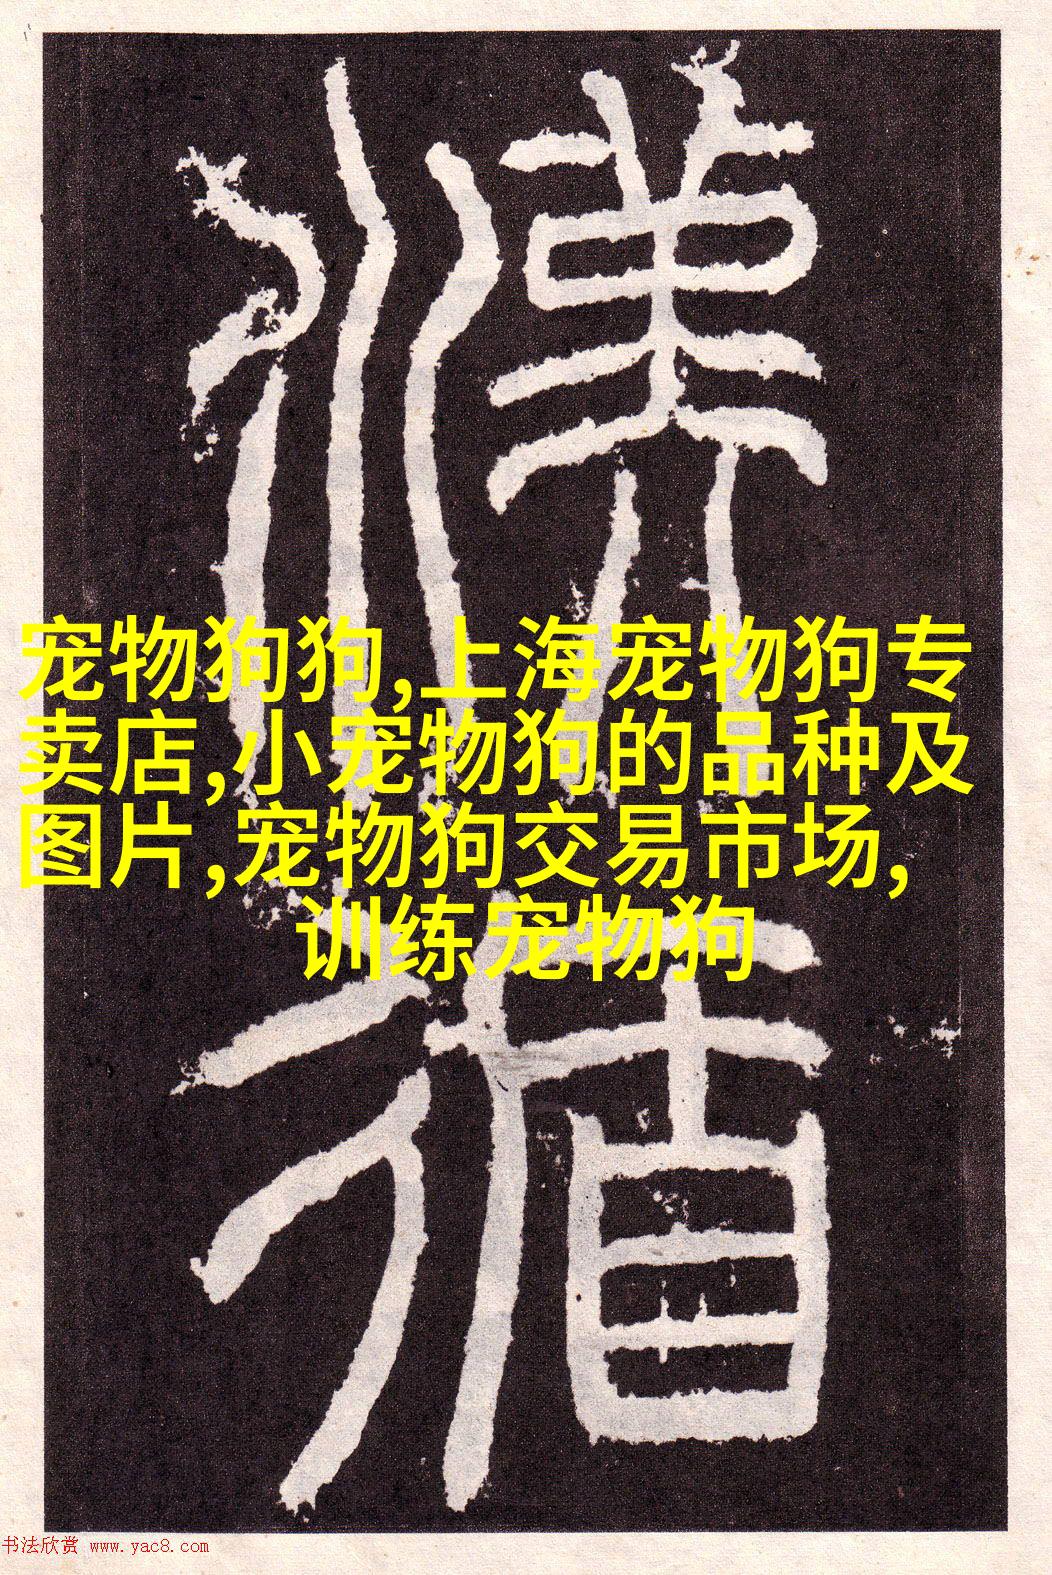 宠物狗狗,上海宠物狗专
卖店,小宠物狗的品种及
图片,宠物狗交易市场,
训练宠物狗
书法欣赏 www.yac8.com